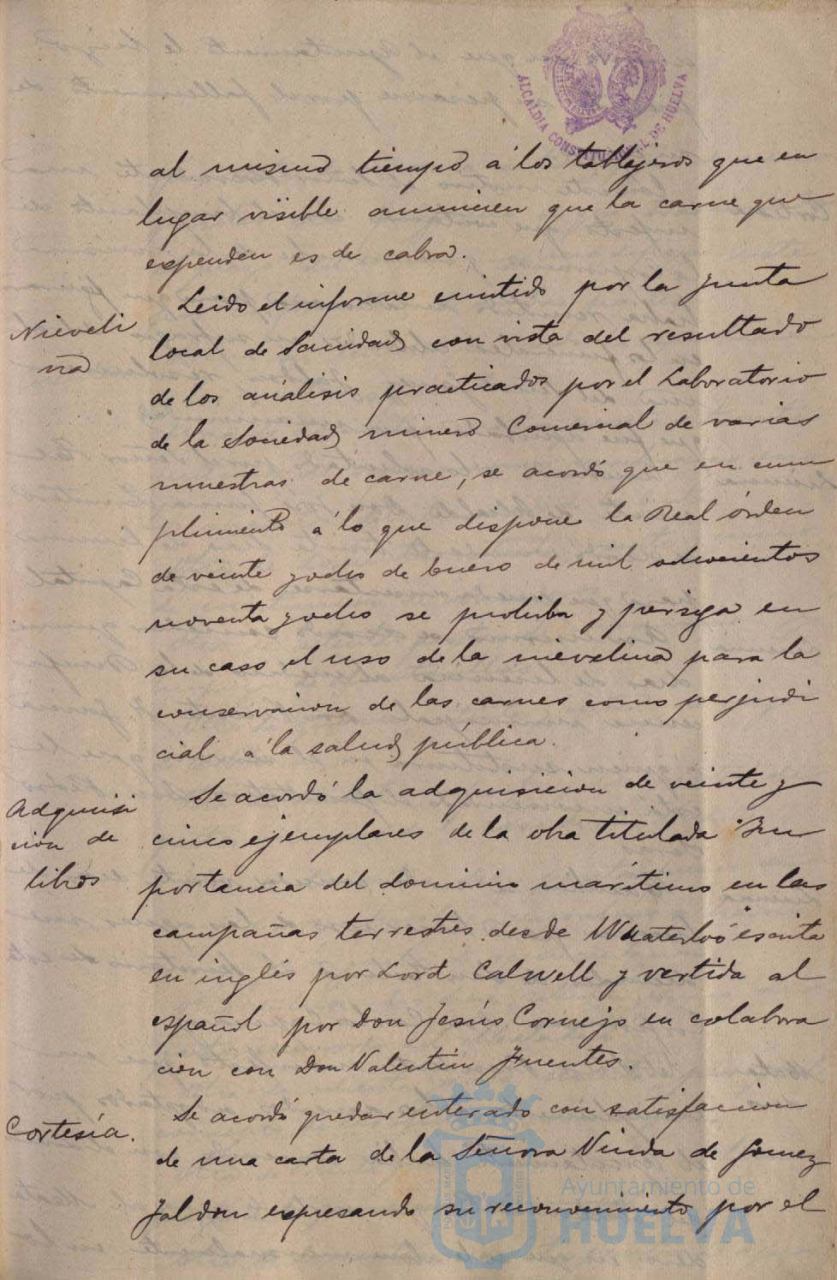 ALCALDIA CONSTITUCIONAL DE HUELVA
al mismo tiempo á los tablajeros que en
lugar visible anuncien que la carne que
expenden es de cabra.
Nieveli
na
Leido el informe emitido por la Junta
local de Sanidad, con vista del resultado
de los análisis practicados por el Laboratorio
de la Sociedad minero Comercial de varias
muestras de carne, se acordó que en cum
plimiento á lo que dispone la Real órden
de veinte y ocho de Enero de mil ochocientos
noventa y ocho se prohiba y persiga en
su caso el uso de la nievelina para la
conservacion de las carnes como perjudi
cial á la salud pública.
Adquisi
cion de
libros
Se acordó la adquisicion de veinte y
cinco ejemplares de la obra titulada Im
portancia del dominio marítimo en las
campañas terrestres desde Waterloó escrita
en inglés por Lord Calwell y vertida al
español por Don Jesús Cornejo en colabora
cion con Don Valentin Fuentes.
Cortesía.
Se acordó quedar enterado con satisfaccion
de una carta de la Señora Viuda de Gomez
Jaldon expresando su reconocimiento por el
Ayuntamiento de
HUELVA